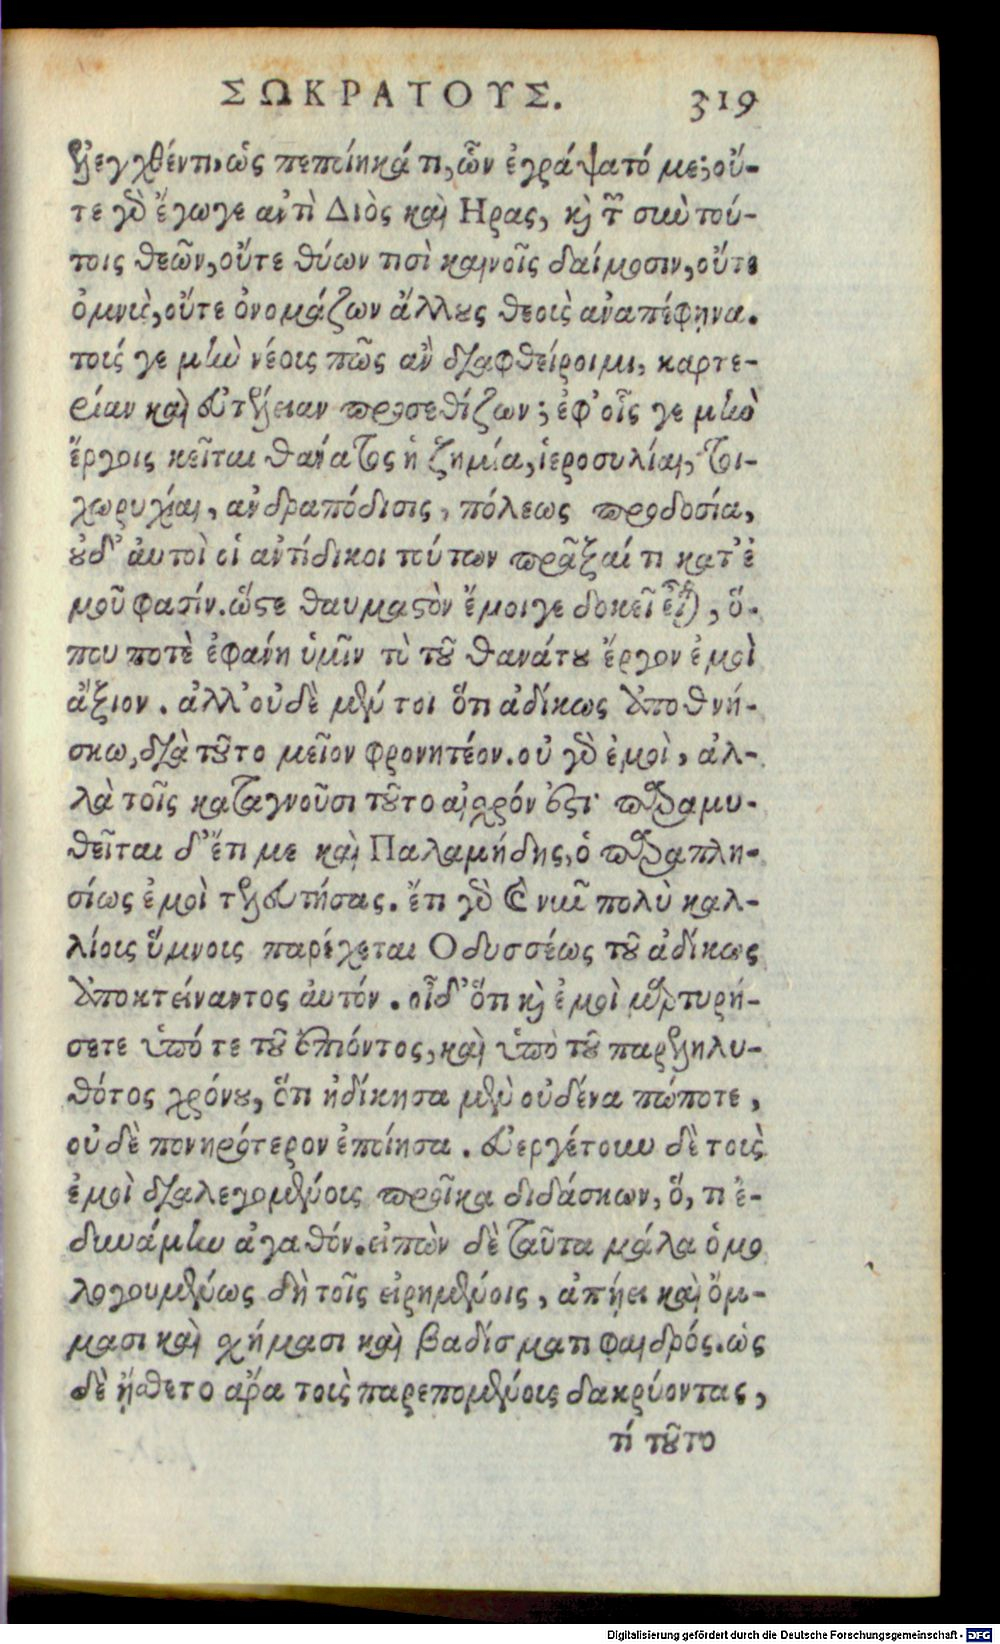 ΣΩΚΡΑΤΟΥΣ. 319
ελεγχθέντι, ὡς πεποίηκά τι, ὧν ἐγράψατό με; οὔ-
τε γὰρ ἔγωγε ἀντὶ Διὸς καὶ Ηρας, καὶ τῶν σὺν τού-
τοις θεῶν, οὔτε θύων τισὶ καινοῖς δαίμοσιν, οὔτε
ὀμνὺς, οὔτε ὀνομάζων ἄλλους θεοὺς ἀναπέφηνα.
τούς γε μὴν νέοις πῶς ἂν διαφθείροιμι, καρτε-
ρίαν καὶ εὐτέλειαν προσεθίζων; ἐφ' οἷς γε μὴν
ἔργοις κεῖται θάνατος ἡ ζημία, ἱεροσυλίαι, τοι-
χωρυχίαι, ἀνδραπόδισις, πόλεως προδοσία,
οὐδ' αὐτοὶ οἱ ἀντίδικοι τούτων πρᾶξαί τι κατ' ἐ
μοῦ φασίν. ὥστε θαυμαστὸν ἔμοιγε δοκεῖ εἶναι, ὅ-
που ποτὲ ἐφάνη ὑμῖν τὸ τοῦ θανάτου ἔργον ἐμοὶ
ἄξιον. ἀλλ' οὐδὲ μέν τοι ὅτι ἀδίκως ἀποθνή-
σκω, διὰ τοῦτο μεῖον φρονητέον. οὐ γὰρ ἐμοὶ, ἀλ-
λὰ τοῖς καταγνοῦσι τοῦτο αἰσχρόν ἐστι· παραμυ-
θεῖται δ' ἔτι με καὶ Παλαμήδης, ὁ παραπλη-
σίως ἐμοὶ τελευτήσας. ἔτι γὰρ καὶ νῦν πολὺ καλ-
λίοις ὕμνοις παρέχεται Οδυσσέως τοῦ ἀδίκως
ἀποκτείναντος αὐτόν. οἶδ' ὅτι καὶ ἐμοὶ μαρτυρή-
σετε ὑπό τε τοῦ ἐπιόντος, καὶ ὑπὸ τοῦ παρεληλυ-
θότος χρόνου, ὅτι ἠδίκησα μὲν οὐδένα πώποτε,
οὐδὲ πονηρότερον ἐποίησα. εὐεργέτουν δὲ τοὺς
ἐμοὶ διαλεγομένοις προῖκα διδάσκων, ὅ, τι ἐ-
δυνάμην ἀγαθόν. εἰπὼν δὲ ταῦτα μάλα ὁμο
λογουμένως δὴ τοῖς εἰρημένοις, ἀπῄει καὶ ὄμ-
μασι καὶ σχήμασι καὶ βαδίσματι φαιδρός. ὡς
δὲ ᾔσθετο ἄρα τοὺς παρεπομένοις δακρύοντας,
τί τοῦτο
Digitalisierung gefördert durch die Deutsche Forschungsgemeinschaft - DFG